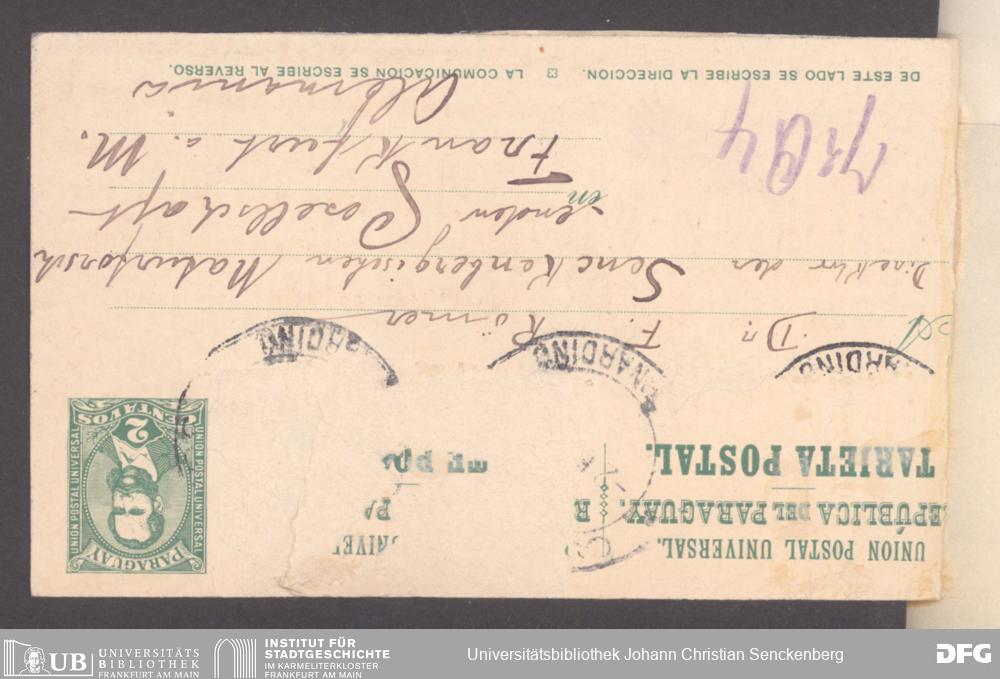 UNION POSTAL UNIVERSAL.
REPÚBLICA DEL PARAGUAY.
TARJETA POSTAL.
PARAGUAY
UNION POSTAL UNIVERSAL
UNION POSTAL UNIVERSAL
2
CENTAVOS
NARDINO
NARDINO
ARDINO
Dr. F. Römer
Direktor der Senckenbergischen Naturforsch
enden Gesellschaft
Frankfurt a. M.
Alemania
DE ESTE LADO SE ESCRIBE LA DIRECCION. LA COMUNICACION SE ESCRIBE AL REVERSO.
UB UNIVERSITÄTS
BIBLIOTHEK
FRANKFURT AM MAIN
INSTITUT FÜR
STADTGESCHICHTE
IM KARMELITERKLOSTER
FRANKFURT AM MAIN
Universitätsbibliothek Johann Christian Senckenberg
DFG